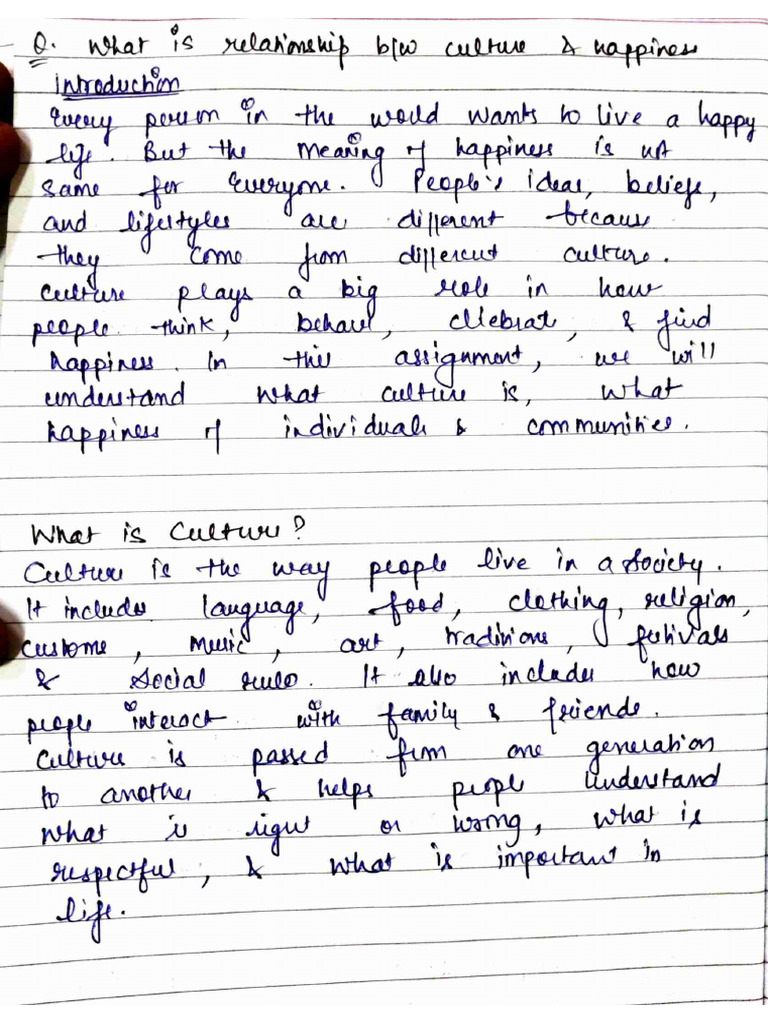 Q. What is relationship b/w culture & happiness
Introduction
Every person in the world wants to live a happy
life. But the meaning of happiness is not
same for everyone. People's ideas, beliefs,
and lifestyles are different because
they come from different culture.
Culture plays a big role in how
people think, behave, celebrate, & find
happiness. In this assignment, we will
understand what culture is, what
happiness of individuals & communities.
What is Culture?
Culture is the way people live in a society.
It includes language, food, clothing, religion,
customs, music, art, traditions, festivals
& social rules. It also includes how
people interact with family & friends.
Culture is passed from one generation
to another & helps people understand
what is right or wrong, what is
respectful, & what is important in
life.